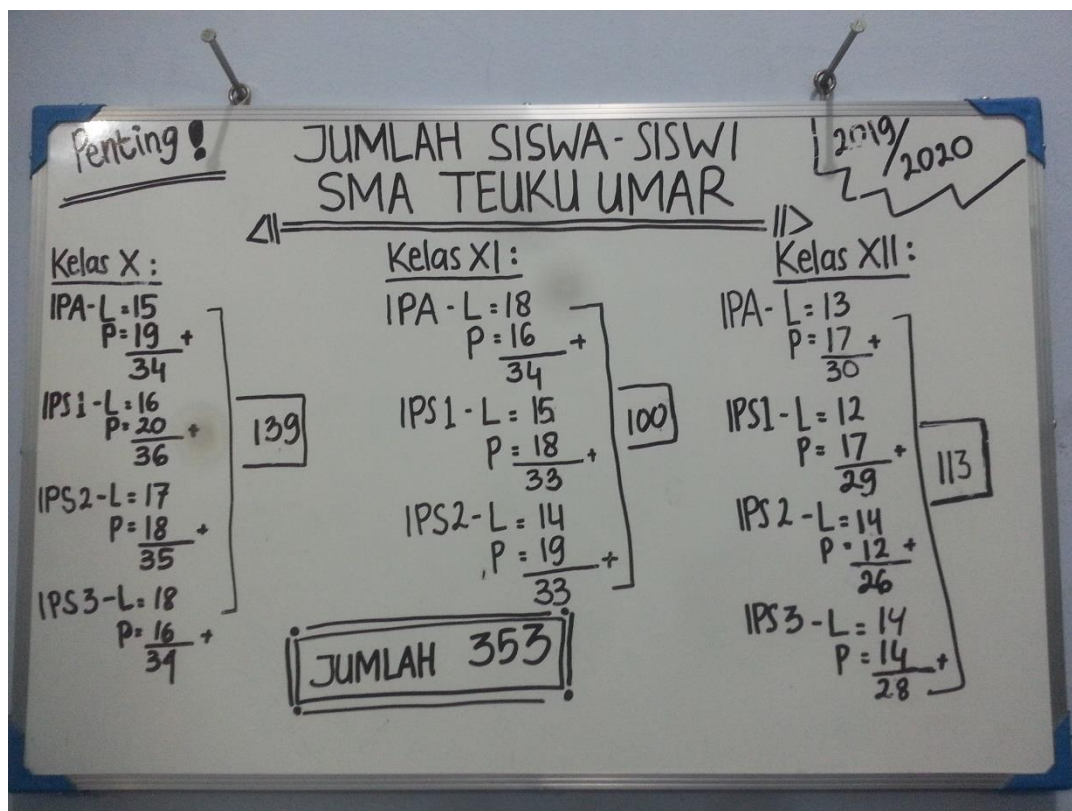 Penting!
JUMLAH SISWA-SISWI
SMA TEUKU UMAR
2019/2020
Kelas X :
IPA-L=15
P=19 +
34
IPS1-L=16
P=20 +
36
IPS2-L=17
P=18 +
35
IPS3-L=18
P=16 +
34
139
Kelas XI :
IPA-L=18
P=16 +
34
IPS1-L=15
P=18 +
33
IPS2-L=14
P=19 +
33
100
Kelas XII :
IPA-L=13
P=17 +
30
IPS1-L=12
P=17 +
29
IPS2-L=14
P=12 +
26
IPS3-L=14
P=14 +
28
113
JUMLAH 353